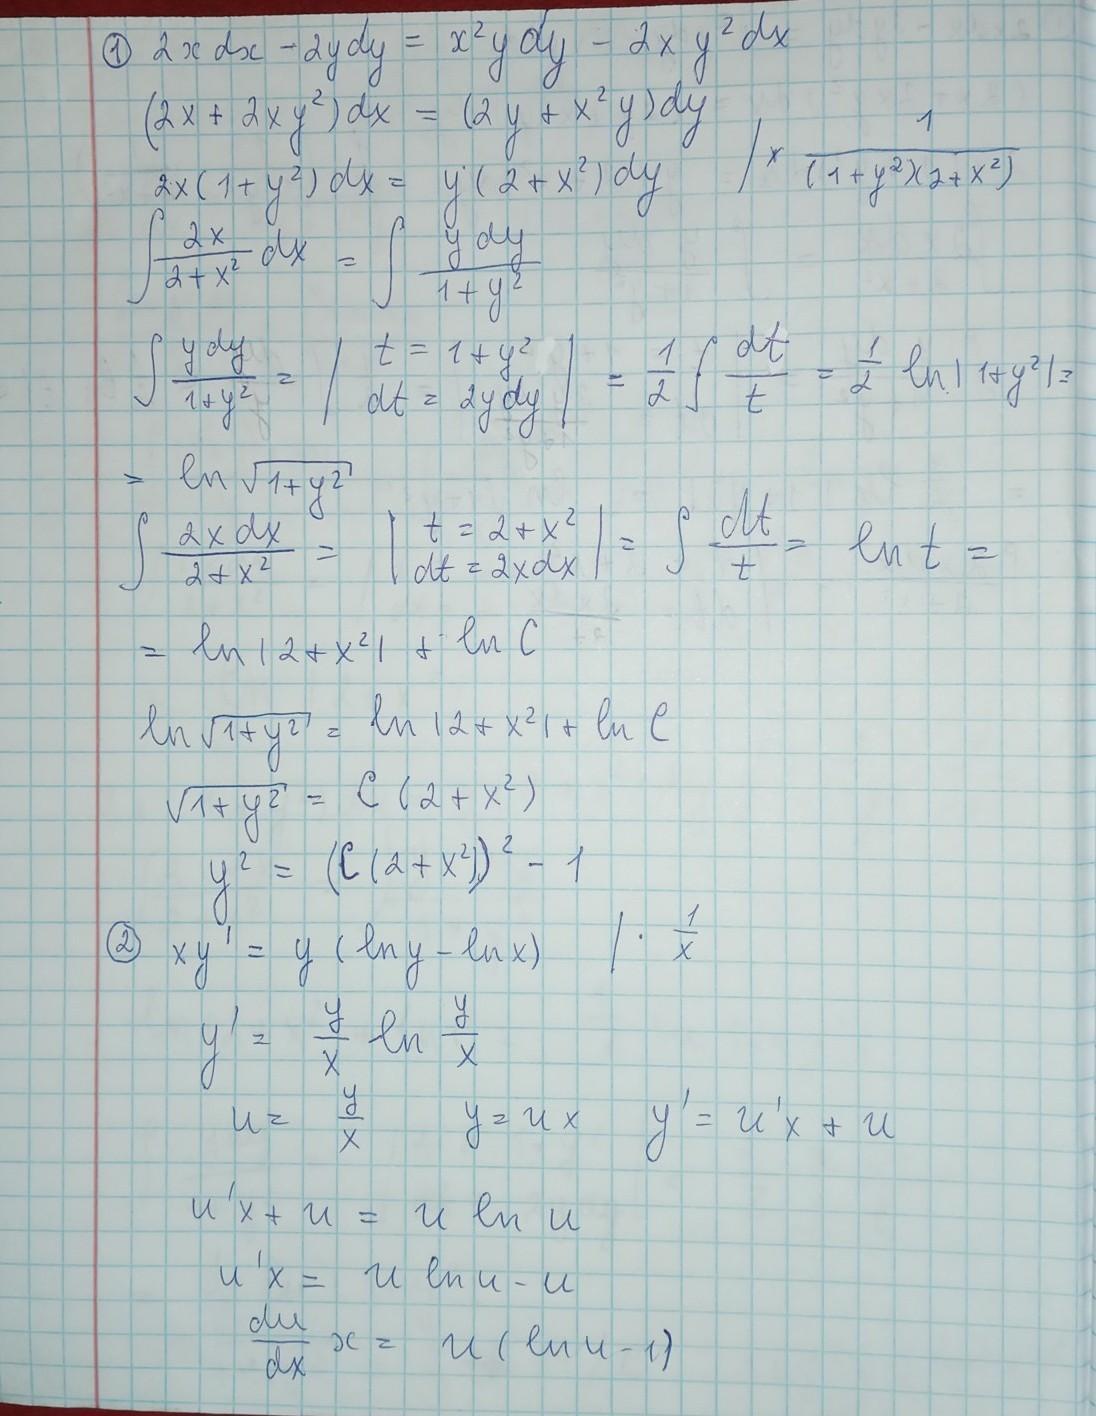 ① 2x dx - 2y dy = x²y dy - 2x y² dx
(2x + 2xy²) dx = (2y + x²y) dy
2x(1+y²) dx = y(2+x²) dy | × 1/((1+y²)(2+x²))
∫ 2x/(2+x²) dx = ∫ y dy/(1+y²)
∫ y dy/(1+y²) = | t = 1+y² dt = 2y dy | = 1/2 ∫ dt/t = 1/2 ln |1+y²| =
= ln √(1+y²)
∫ 2x dx/(2+x²) = | t = 2+x² dt = 2x dx | = ∫ dt/t = ln t =
= ln |2+x²| + ln C
ln √(1+y²) = ln |2+x²| + ln C
√(1+y²) = C (2+x²)
y² = (C(2+x²))² - 1
② xy' = y (ln y - ln x) | · 1/x
y' = y/x ln y/x
u = y/x y = ux y' = u'x + u
u'x + u = u ln u
u'x = u ln u - u
du/dx x = u (ln u - 1)